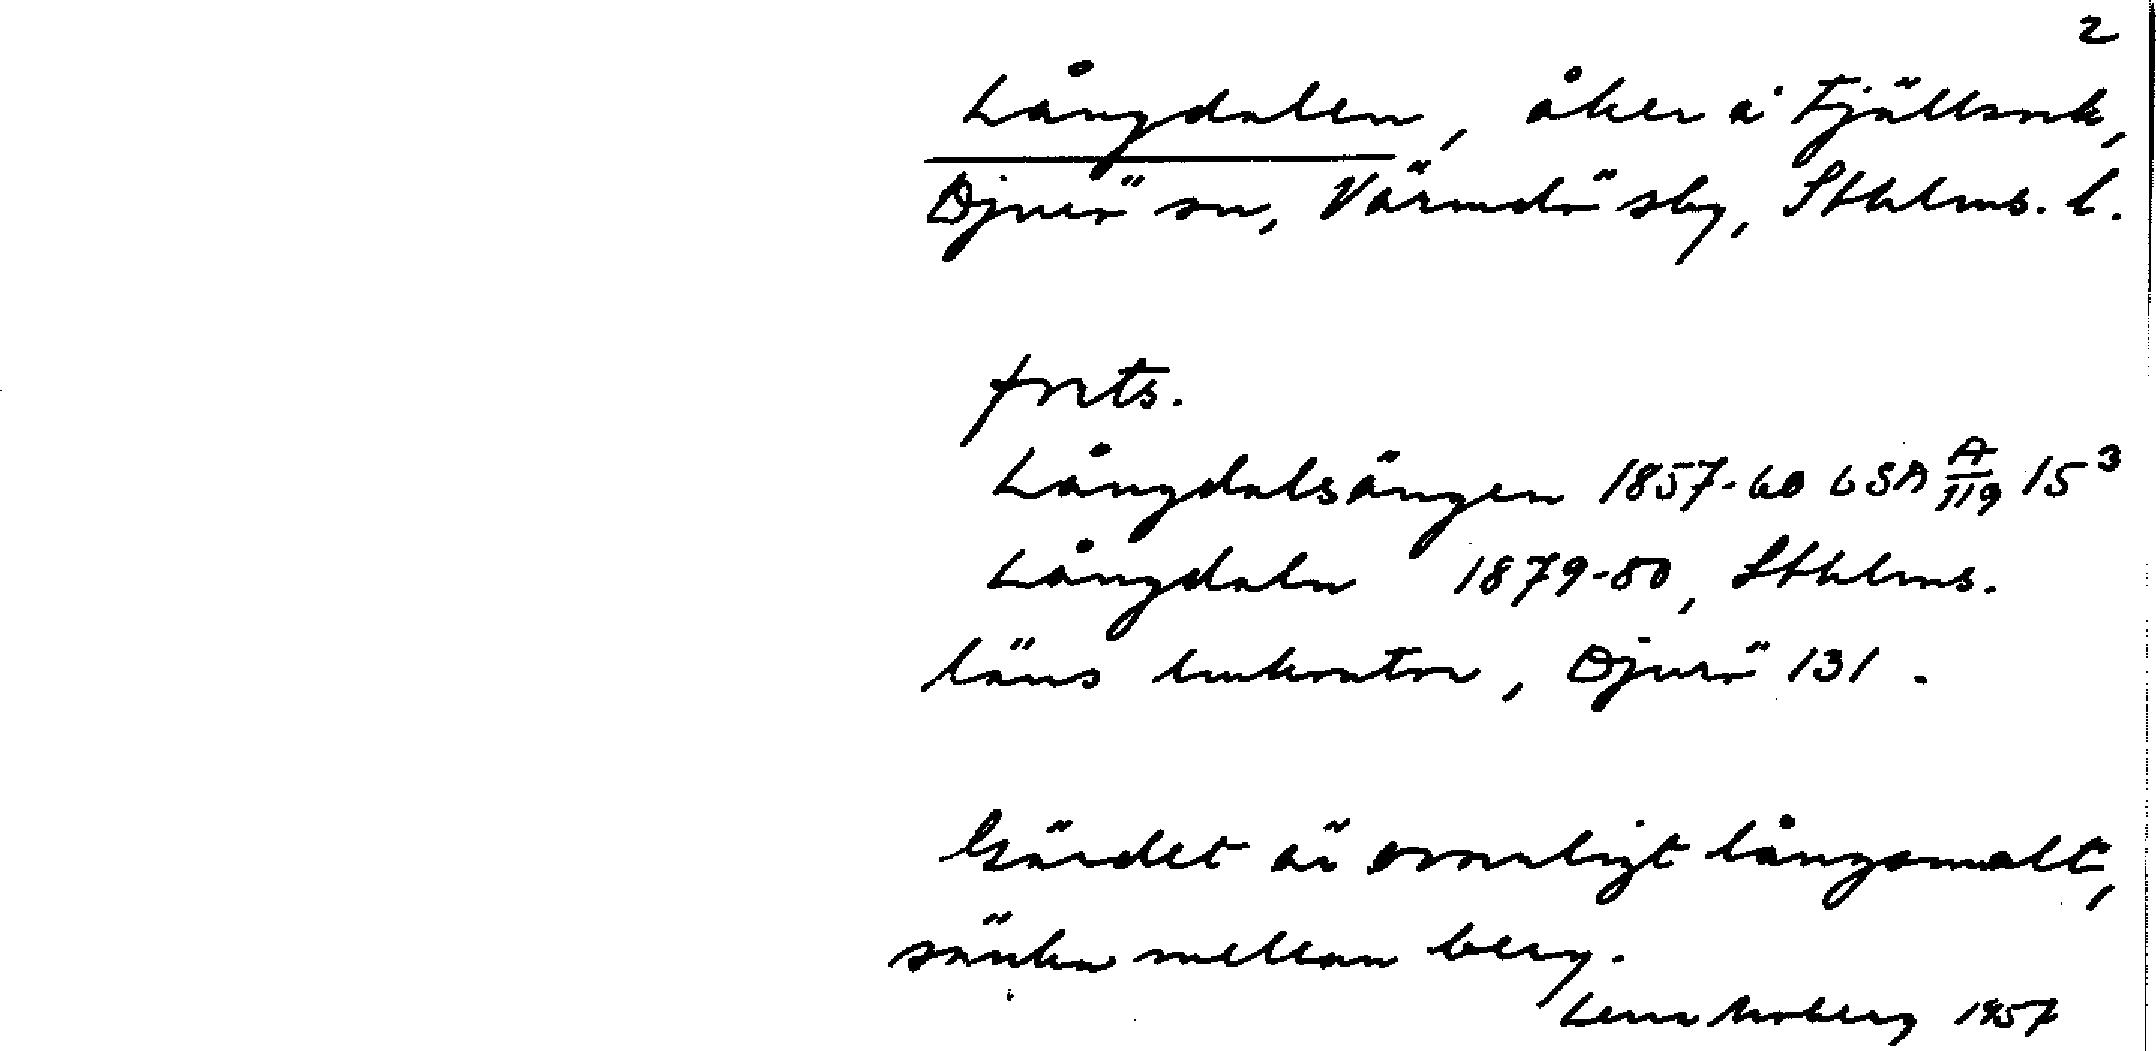 2
Långdalen, åker å Fjällsvik,
Djurö sn, Värmdö sbg, Sthlms. l.
forts.
Långdalsängen 1857-60 LSA A/119 15³
Långdaln 1879-80, Sthlms.
läns lmkontor, Djurö 131.
Gärdet är ovanligt långsmalt,
sänka mellan berg.
Lena Moberg 1957